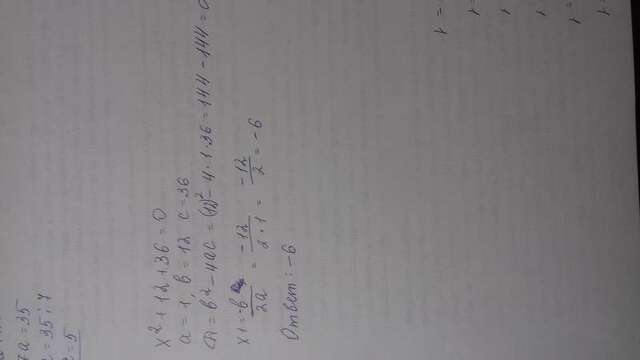 7a = 35
= 35 : 7
= 5
x² + 12 + 36 = 0
a = 1, b = 12 c = 36
D = b² - 4ac = (12)² - 4 · 1 · 36 = 144 - 144 = 0
x1 = -b / 2a = -12 / 2 · 1 = -12 / 2 = -6
Ответ: -6.